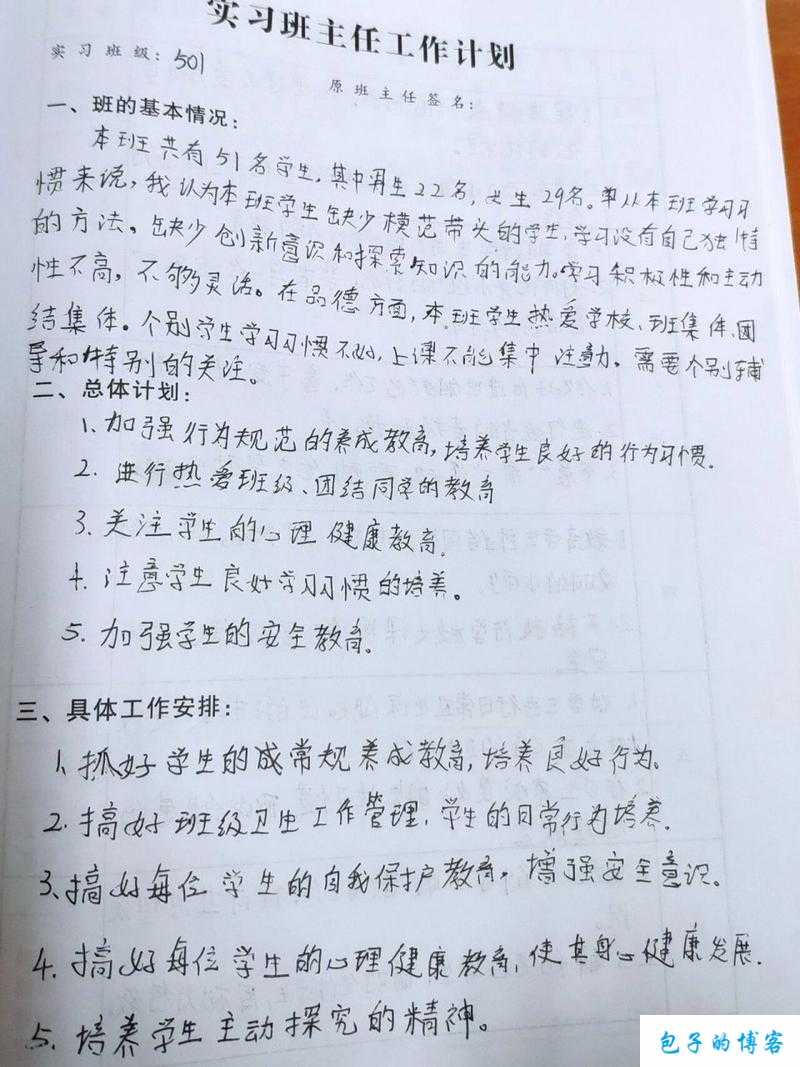 实习班主任工作计划
实习班级：501
原班主任签名：
一、班的基本情况：
本班共有51名学生，其中男生22名，女生29名。单从本班学习习
惯来说，我认为本班学生缺少模范带头的学生，学习没有自己独特
的方法。缺少创新意识和探索知识的能力。学习积极性和主动
性不高，不够灵活。在品德方面，本班学生热爱学校、班集体、团
结集体。个别学生学习习惯不好，上课不能集中注意力，需要个别辅
导和特别的关注。
二、总体计划：
1、加强行为规范的养成教育，培养学生良好的行为习惯．
2．进行热爱班级、团结同学的教育
3．关注学生的心理健康教育．
4．注意学生良好学习习惯的培养。
5．加强学生的安全教育．
三、具体工作安排：
1、抓好学生的成常规养成教育，培养良好行为．
2．搞好班级卫生工作管理，学生的日常行为培养．
3、搞好每位学生的自我保护教育，增强安全意识。
4．搞好每位学生的心理健康教育，使其身心健康发展．
5．培养学生主动探究的精神。
包子的博客